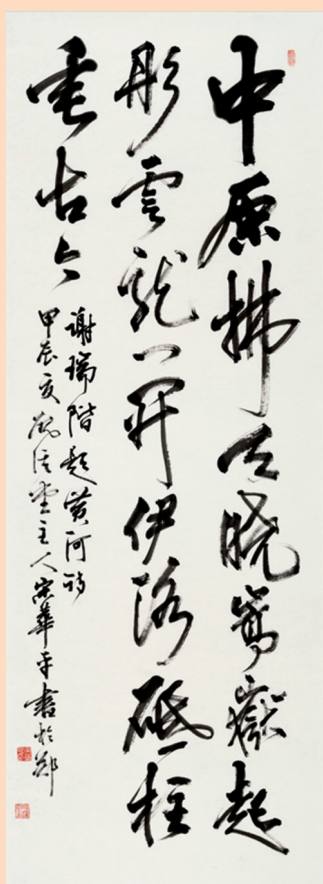 中原拂晓嵩嶽起
彤雲龍門開伊洛砥柱
垂古今
谢瑞階題黄河诗
甲辰夏堂主人宋華平書於郑